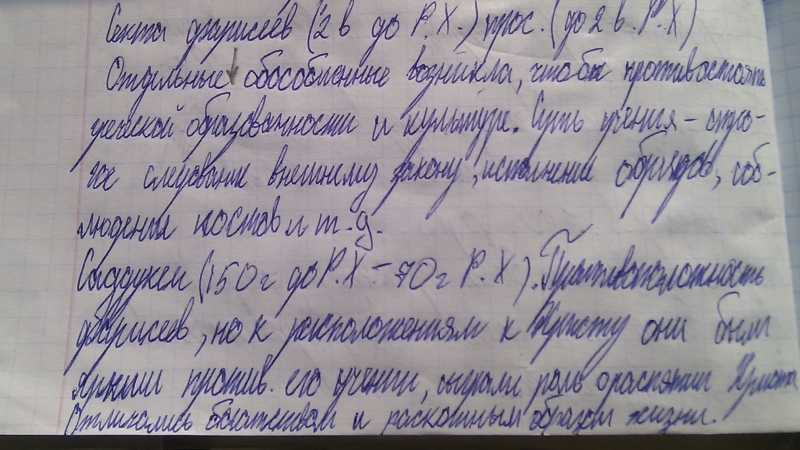 Секта фарисеев (2 в до Р.Х.) прос. (до 2 в. Р.Х)
Отдельные обособленные возникла, чтобы противостоять
греческой образованности и культуре. Суть учения - стро-
гое следование внешнему закону, исполнение обрядов, соб-
людения постов и т.д.
Саддукеи (150 г до Р.Х - 70 г Р.Х). Противоположность
фарисеев, но к расположениям к Христу они были
ярыми против. его учении, сыграли роль о распятии Христа
Отличались богатством и раскошным образом жизни.